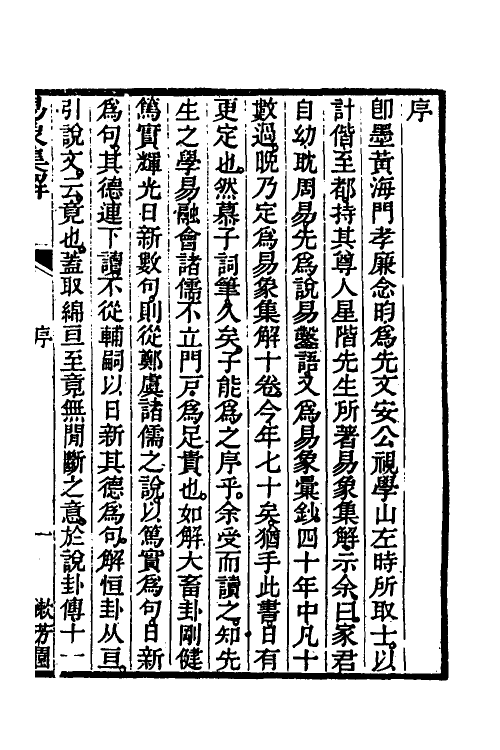 序
卽墨黃海門孝廉念昀爲先文安公視學山左時所取士以
計偕至都持其尊人星階先生所著易象集解示余曰家君
自幼耽周易先爲說易鑿語又爲易象彙鈔四十年中凡十
數過晚乃定爲易象集解十卷今年七十矣猶手此書日有
更定也然慕子詞筆久矣子能爲之序乎余受而讀之知先
生之學易融會諸儒不立門戶爲足貴也如解大畜卦剛健
篤實輝光日新數句則從鄭虞諸儒之說以篤實爲句日新
爲句其德連下讀不從輔嗣以日新其德爲句解恒卦从亘
引說文云竟也蓋取綿亘至竟無閒斷之意於說卦傳十一
易象集解
序
一
漱芳園